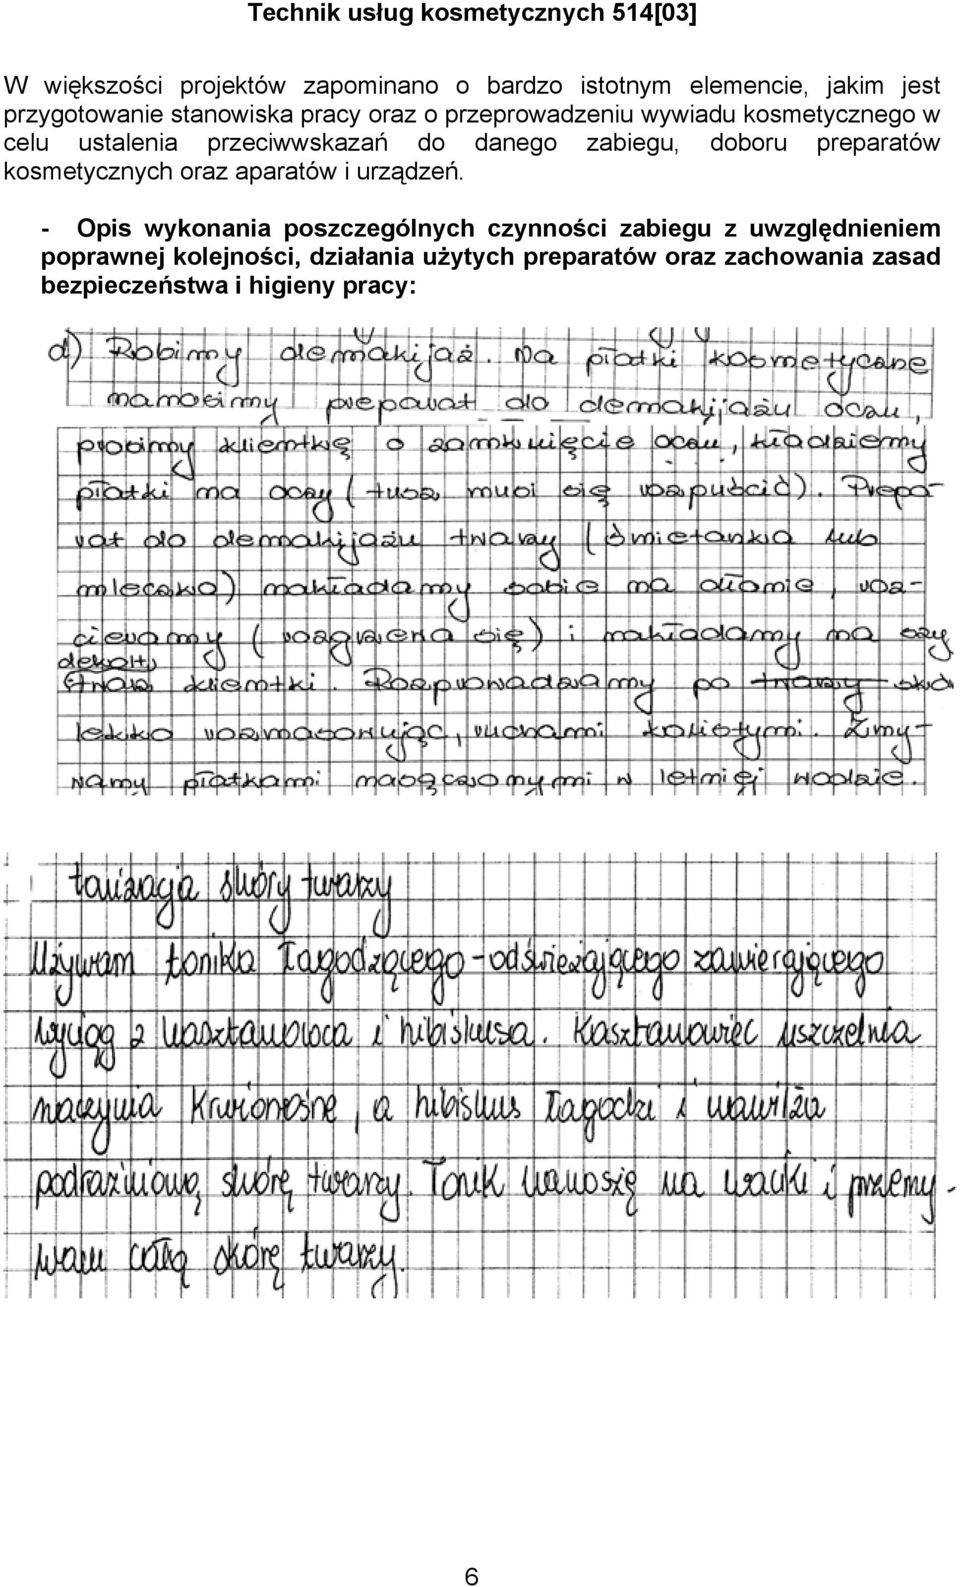 Technik usług kosmetycznych 514[03]
W większości projektów zapominano o bardzo istotnym elemencie, jakim jest
przygotowanie stanowiska pracy oraz o przeprowadzeniu wywiadu kosmetycznego w
celu ustalenia przeciwwskazań do danego zabiegu, doboru preparatów
kosmetycznych oraz aparatów i urządzeń.
- Opis wykonania poszczególnych czynności zabiegu z uwzględnieniem
poprawnej kolejności, działania użytych preparatów oraz zachowania zasad
bezpieczeństwa i higieny pracy:
d) Robimy demakijaż. Na płatki kosmetyczne
nanosimy preparat do demakijażu oczu,
prosimy klientkę o zamknięcie oczu, kładziemy
płatki na oczy (tusz musi się rozpuścić). Prepa-
rat do demakijażu twarzy (śmietanka lub
mleczko) nakładamy sobie na dłonie, roz-
cieramy (rozgrzewa się) i nakładamy na szyję
dekolt,
twarz klientki. Rozprowadzamy po twarzy
lekko rozmasowując, ruchami kolistymi. Zmy-
wamy płatkami namoczonymi w letniej wodzie.
tonizacja skóry twarzy
Używam toniku łagodząco-odświeżającego zawierającego
wyciąg z kasztanowca i hibiskusa. Kasztanowiec uszczelnia
naczynia krwionośne, a hibiskus łagodzi i nawilża
podrażnioną skórę twarzy. Tonik nanoszę na waciki i przemy-
wam całą skórę twarzy.
6